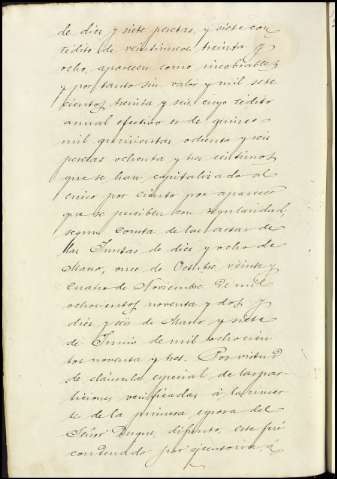 de diez y siete pesetas, y siete con
rédito de veintinueve treinta y
ocho, aparecen como incobrables
y por tanto sin valor y mil sete
cientos treinta y seis cuyo rédito
anual efectivo es de quince
mil quinientas ochenta y seis
pesetas ochenta y tres centimos
que se han capitalizado al
cinco por ciento por aparecer
que se perciben con regularidad,
segun consta de las actas de
las Juntas de diez y ocho de
Marzo, once de Octubre, veinte y
cuatro de Noviembre de mil
ochocientos noventa y dos y
diez y seis de Marzo y siete
de Junio de mil ochocien
tos noventa y tres. Por virtud
de cláusula especial, de las par
ticiones verificadas á la muer
te de la primera esposa del
Señor Duque, difunto, este fué
condenado por ejecutoria, á